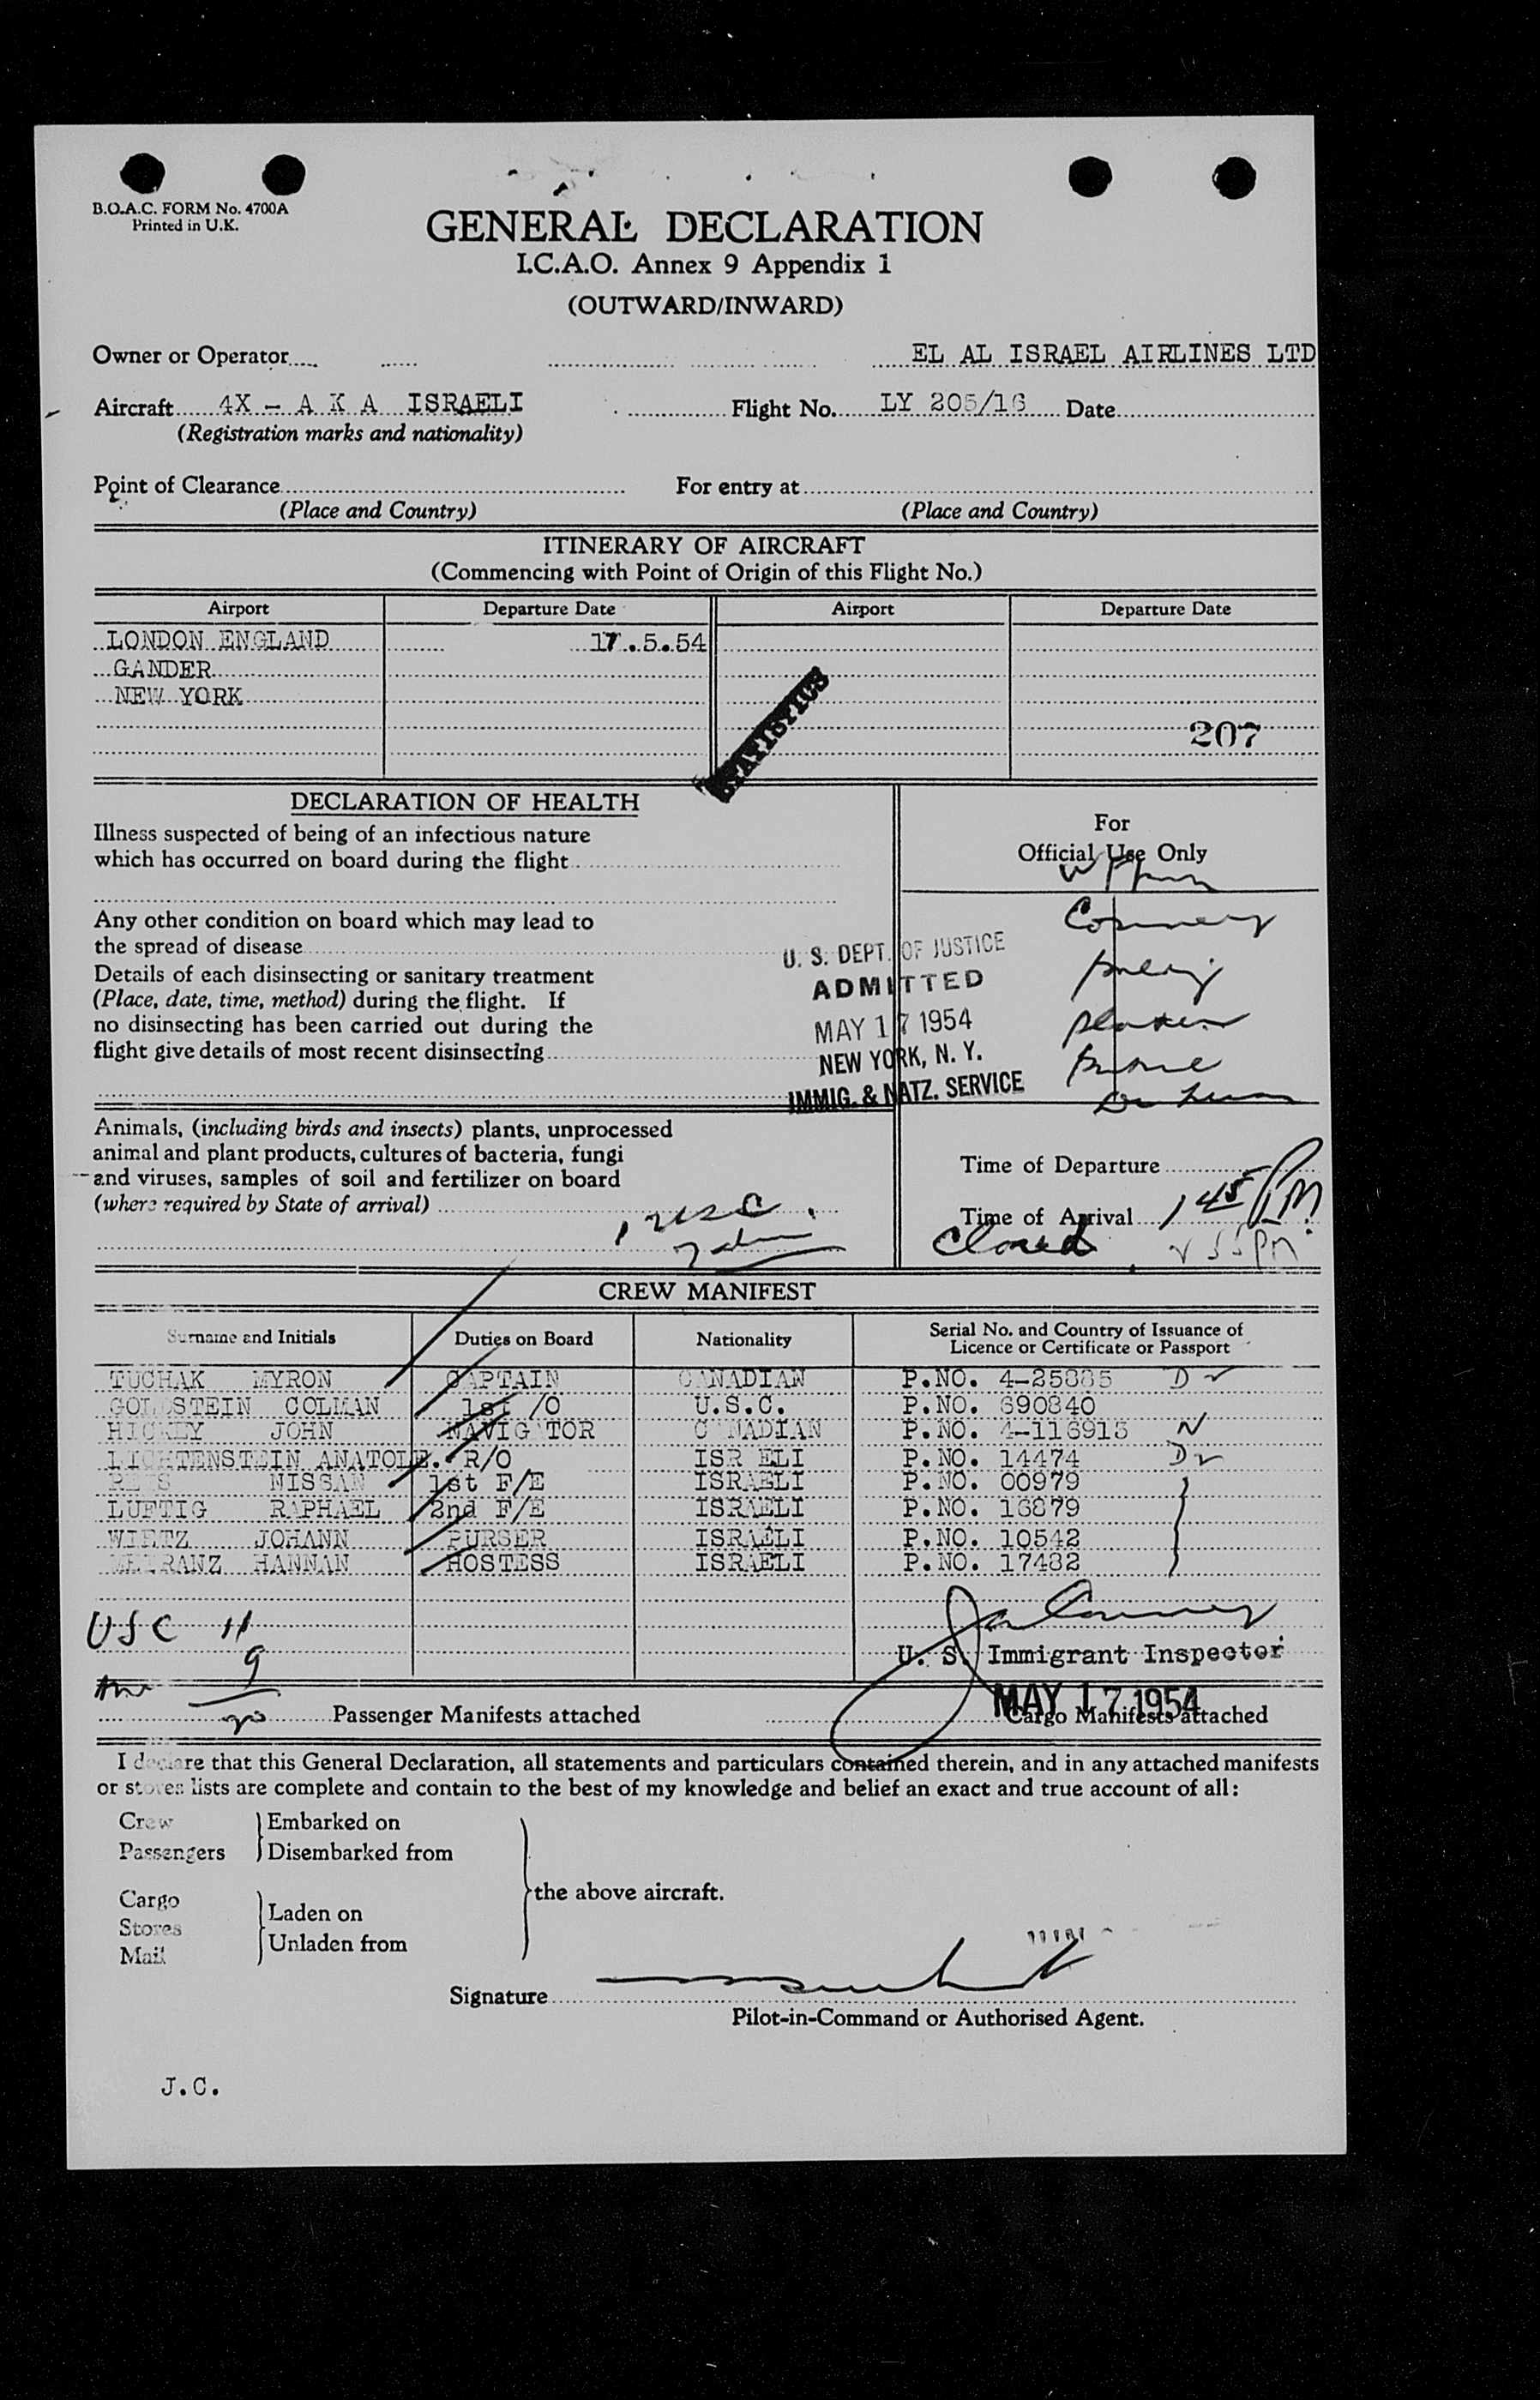 B.O.A.C. FORM No. 4700A
Printed in U.K.
GENERAL DECLARATION
I.C.A.O. Annex 9 Appendix 1
(OUTWARD/INWARD)
Owner or Operator EL AL ISRAEL AIRLINES LTD
Aircraft 4X - A K A ISRAELI Flight No. LY 205/16 Date
(Registration marks and nationality)
Point of Clearance For entry at
(Place and Country) (Place and Country)
ITINERARY OF AIRCRAFT
(Commencing with Point of Origin of this Flight No.)
Airport Departure Date Airport Departure Date
LONDON ENGLAND 17.5.54
GANDER
NEW YORK
STATISTICS
207
DECLARATION OF HEALTH
Illness suspected of being of an infectious nature
which has occurred on board during the flight
For
Official Use Only
Any other condition on board which may lead to
the spread of disease
Details of each disinsecting or sanitary treatment
(Place, date, time, method) during the flight. If
no disinsecting has been carried out during the
flight give details of most recent disinsecting
U. S. DEPT. OF JUSTICE
ADMITTED
MAY 17 1954
NEW YORK, N. Y.
IMMIG. & NATZ. SERVICE
Animals, (including birds and insects) plants, unprocessed
animal and plant products, cultures of bacteria, fungi
and viruses, samples of soil and fertilizer on board
(where required by State of arrival)
1 USC
Time of Departure
Time of Arrival 1 45 PM
Closed
CREW MANIFEST
Surname and Initials Duties on Board Nationality Serial No. and Country of Issuance of
Licence or Certificate or Passport
TUCHAK MYRON CAPTAIN CANADIAN P.NO. 4-25885 D
GOLDSTEIN COLMAN 1st /O U.S.C. P.NO. 690840
HICKEY JOHN NAVIGATOR CANADIAN P.NO. 4-116913 N
LICHTENSTEIN ANATOLE. R/O ISRAELI P.NO. 14474
NISSAN 1st F/E ISRAELI P.NO. 00979
LUFTIG RAPHAEL 2nd F/E ISRAELI P.NO. 16879
WIETZ JOHANN PURSER ISRAELI P.NO. 10542
HANNAN HOSTESS ISRAELI P.NO. 17482
USC 11
9
U. S. Immigrant Inspector
MAY 17 1954
20 Passenger Manifests attached Cargo Manifests attached
I declare that this General Declaration, all statements and particulars contained therein, and in any attached manifests
or stores lists are complete and contain to the best of my knowledge and belief an exact and true account of all:
Crew Embarked on
Passengers Disembarked from
the above aircraft.
Cargo
Stores Laden on
Mail Unladen from
Signature
Pilot-in-Command or Authorised Agent.
J.C.